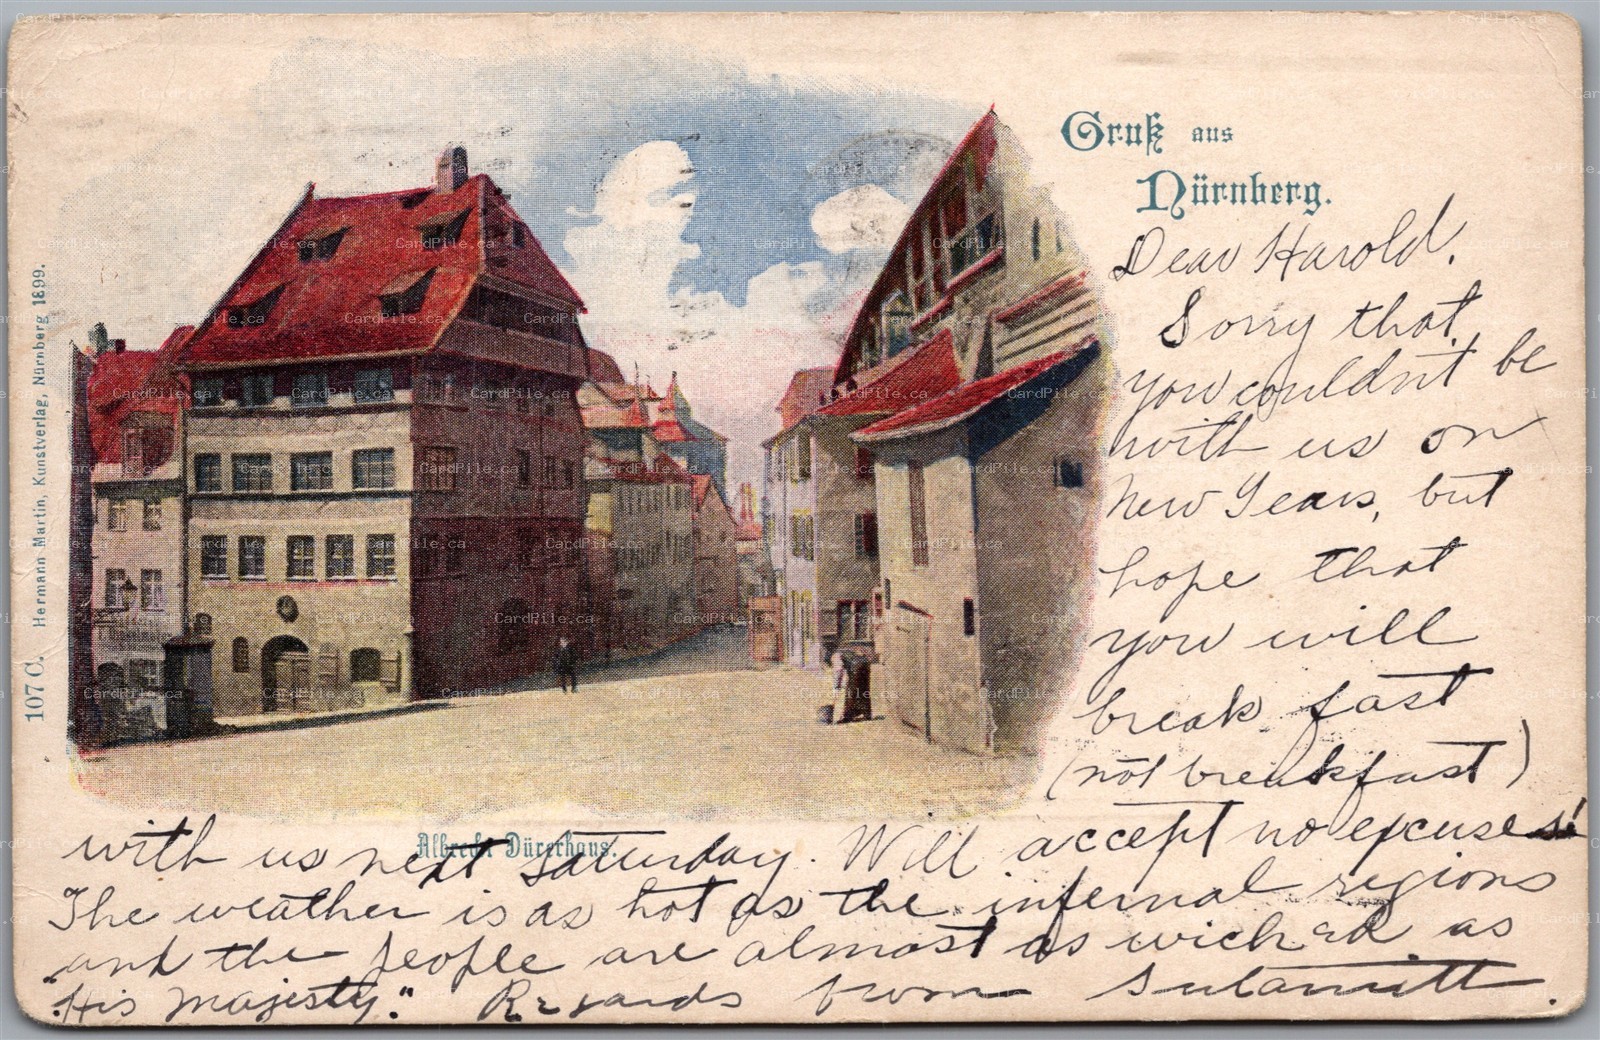 Gruß aus
Nürnberg.
Dear Harold.
Sorry that
you couldn't be
with us on
New Years, but
hope that
you will
break fast
(not breakfast)
with us next Saturday. Will accept no excuses!
The weather is as hot as the infernal regions
and the people are almost as wicked as
"His Majesty". Regards from Sulamitt.
Albrecht Dürerhaus.
107 C. Hermann Martin, Kunstverlag, Nürnberg 1899.
CardPile.ca